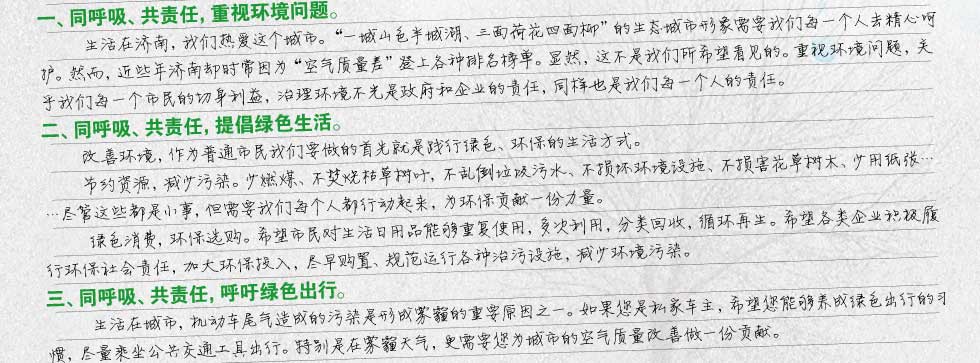 一、同呼吸、共责任，重视环境问题。
生活在济南，我们热爱这个城市。“一城山色半城湖、三面荷花四面柳”的生态城市形象需要我们每一个人去精心呵
护。然而，近些年济南却时常因为“空气质量差”登上各种排名榜单。显然，这不是我们所希望看见的。重视环境问题，关
乎我们每一个市民的切身利益，治理环境不光是政府和企业的责任，同样也是我们每一个人的责任。
二、同呼吸、共责任，提倡绿色生活。
改善环境，作为普通市民我们要做的首先就是践行绿色、环保的生活方式。
节约资源，减少污染。少燃煤、不焚烧枯草树叶，不乱倒垃圾污水、不损坏环境设施、不损害花草树木、少用纸张…
…尽管这些都是小事，但需要我们每个人都行动起来，为环保贡献一份力量。
绿色消费，环保选购。希望市民对生活日用品能够重复使用，多次利用，分类回收，循环再生。希望各类企业积极履
行环保社会责任，加大环保投入，尽早购置、规范运行各种治污设施，减少环境污染。
三、同呼吸、共责任，呼吁绿色出行。
生活在城市，机动车尾气造成的污染是形成雾霾的重要原因之一。如果您是私家车主，希望您能够养成绿色出行的习
惯，尽量乘坐公共交通工具出行。特别是在雾霾天气，更需要您为城市的空气质量改善做一份贡献。